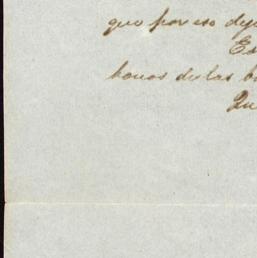 que por eso deje
Es
honor de las b
Qu